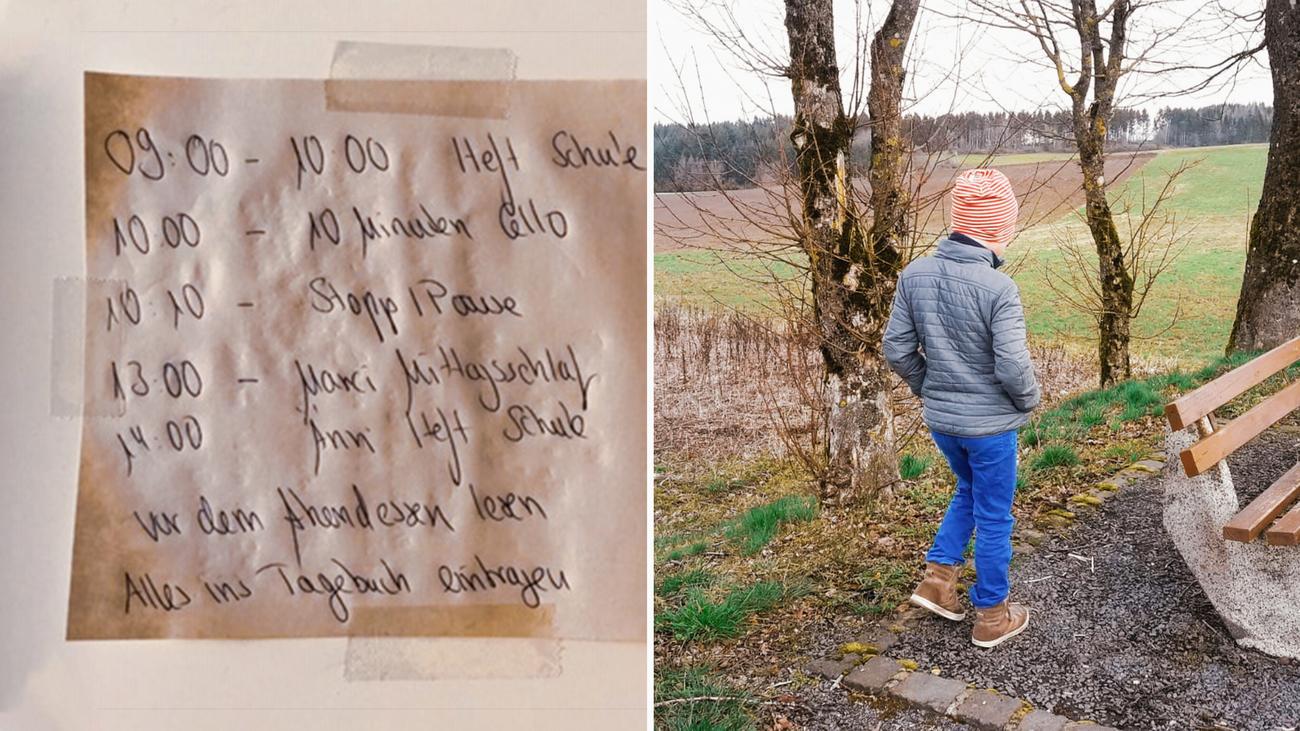 09:00 - 10:00 Heft Schule
10:00 - 10 Minuten Cello
10:10 - Stopp / Pause
13:00 - Marci Mittagsschlaf
14:00 Änni Heft Schule
vor dem Abendessen lesen
Alles ins Tagebuch eintragen